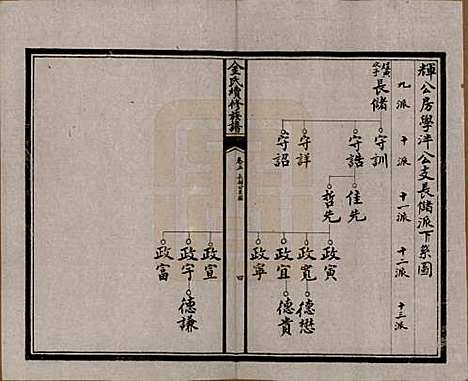 輝公房學泮公支長儲派下系圖
九派 十派 十一派 十二派 十三派
長儲
守訓 守誥 守詳 守詔
佳先 哲先
政寅 政寬 政宜 政寧 政宣 政宇 政富
德懋 德貴 德謙
金氏續修族譜
卷三
四